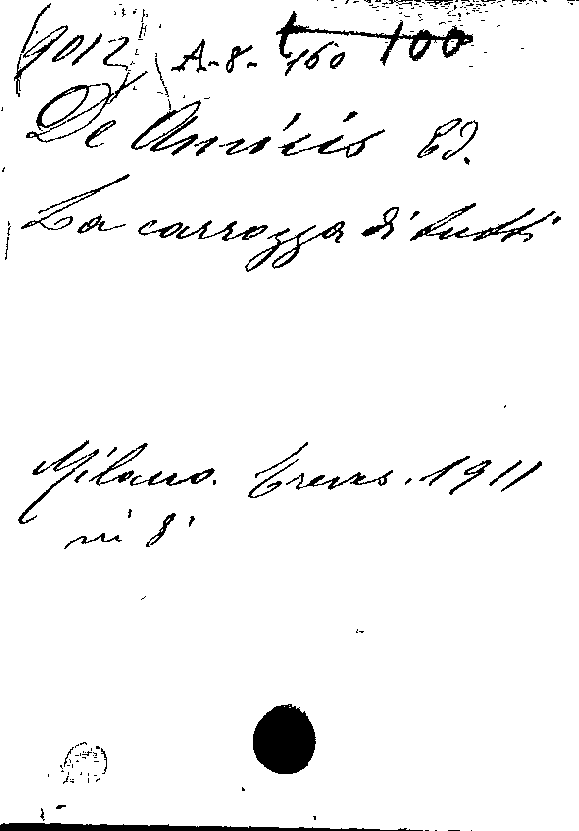 9012 A-8-160 100
De Amicis Ed.
La carrozza di tutti
Milano. Treves. 1911
in 8°